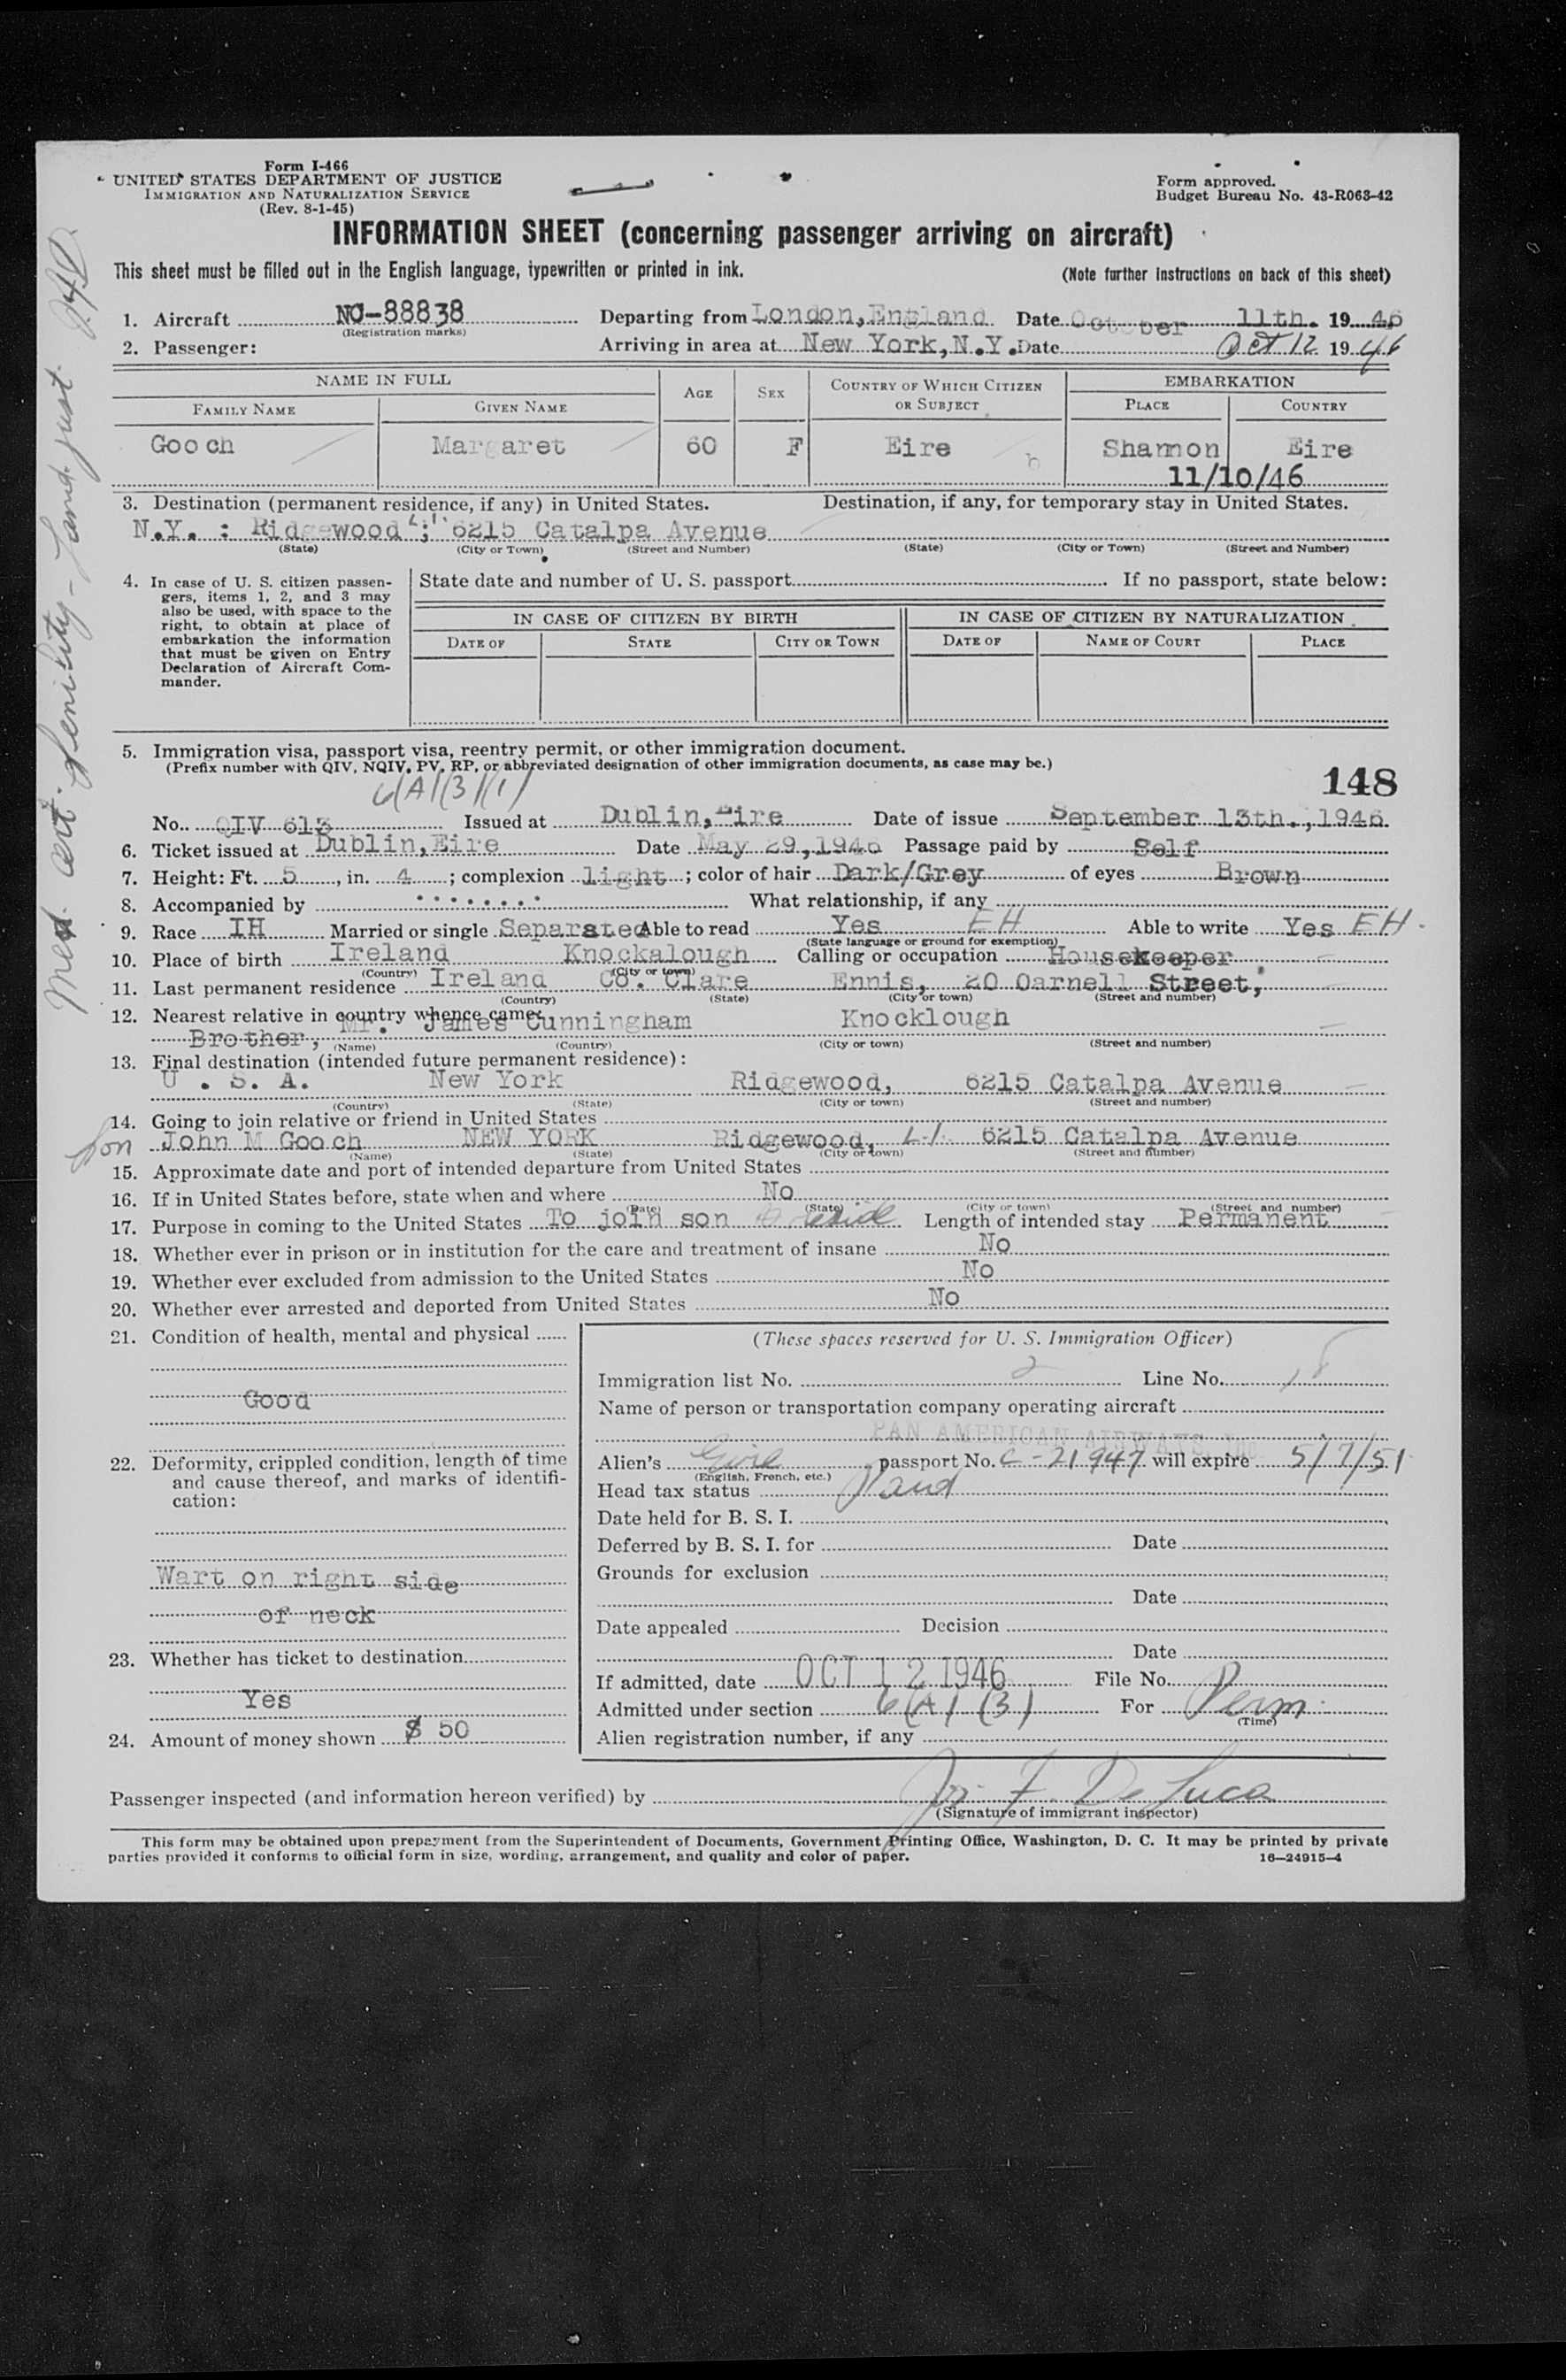 Form I-466
UNITED STATES DEPARTMENT OF JUSTICE
IMMIGRATION AND NATURALIZATION SERVICE
(Rev. 8-1-45)
Form approved.
Budget Bureau No. 43-R063-42
INFORMATION SHEET (concerning passenger arriving on aircraft)
This sheet must be filled out in the English language, typewritten or printed in ink.
(Note further instructions on back of this sheet)
1. Aircraft NC-88838 Departing from London, England Date October 11th. 1946
(Registration marks)
2. Passenger: Arriving in area at New York, N.Y. Date Oct 12 1946
NAME IN FULL AGE SEX COUNTRY OF WHICH CITIZEN OR SUBJECT EMBARKATION
FAMILY NAME GIVEN NAME PLACE COUNTRY
Gooch Margaret 60 F Eire Shannon Eire
11/10/46
3. Destination (permanent residence, if any) in United States. Destination, if any, for temporary stay in United States.
N.Y. : Ridgewood L.I. ; 6215 Catalpa Avenue
(State) (City or Town) (Street and Number) (State) (City or Town) (Street and Number)
4. In case of U. S. citizen passengers, items 1, 2, and 3 may also be used, with space to the right, to obtain at place of embarkation the information that must be given on Entry Declaration of Aircraft Commander.
State date and number of U. S. passport If no passport, state below:
IN CASE OF CITIZEN BY BIRTH IN CASE OF CITIZEN BY NATURALIZATION
DATE OF STATE CITY OR TOWN DATE OF NAME OF COURT PLACE
5. Immigration visa, passport visa, reentry permit, or other immigration document.
(Prefix number with QIV, NQIV, PV, RP, or abbreviated designation of other immigration documents, as case may be.)
148
6(A)(3)(1)
No. QIV 613 Issued at Dublin, Eire Date of issue September 13th., 1946.
6. Ticket issued at Dublin, Eire Date May 29, 1946 Passage paid by Self
7. Height: Ft. 5, in. 4; complexion light; color of hair Dark/Grey of eyes Brown
8. Accompanied by ........ What relationship, if any
9. Race IH Married or single Separated Able to read Yes EH Able to write Yes EH
(State language or ground for exemption)
10. Place of birth Ireland Knockalough Calling or occupation Housekeeper
(Country) (City or town)
11. Last permanent residence Ireland Co. Clare Ennis, 20 Oarnell Street,
(Country) (State) (City or town) (Street and number)
12. Nearest relative in country whence came:
Brother, Mr. James Cunningham Knocklough
(Name) (Country) (City or town) (Street and number)
13. Final destination (intended future permanent residence):
U . S. A. New York Ridgewood, 6215 Catalpa Avenue
(Country) (State) (City or town) (Street and number)
14. Going to join relative or friend in United States
Son John M Gooch NEW YORK Ridgewood, L.I. 6215 Catalpa Avenue
(Name) (State) (City or town) (Street and number)
15. Approximate date and port of intended departure from United States
16. If in United States before, state when and where No
(Date) (State) (City or town) (Street and number)
17. Purpose in coming to the United States To join son & reside Length of intended stay Permanent
18. Whether ever in prison or in institution for the care and treatment of insane No
19. Whether ever excluded from admission to the United States No
20. Whether ever arrested and deported from United States No
21. Condition of health, mental and physical
Good
22. Deformity, crippled condition, length of time and cause thereof, and marks of identification:
Wart on right side
of neck
23. Whether has ticket to destination
Yes
24. Amount of money shown $ 50
(These spaces reserved for U. S. Immigration Officer)
Immigration list No. 2 Line No. 18
Name of person or transportation company operating aircraft
PAN AMERICAN AIRWAYS, Inc
Alien's Eire passport No. C-21947 will expire 5/7/51
(English, French, etc.)
Head tax status Paid
Date held for B. S. I.
Deferred by B. S. I. for Date
Grounds for exclusion
Date
Date appealed Decision
Date
If admitted, date OCT 12 1946 File No.
Admitted under section 6(A)(3) For Perm.
(Time)
Alien registration number, if any
Passenger inspected (and information hereon verified) by Jos. F. De Luca
(Signature of immigrant inspector)
This form may be obtained upon prepayment from the Superintendent of Documents, Government Printing Office, Washington, D. C. It may be printed by private
parties provided it conforms to official form in size, wording, arrangement, and quality and color of paper. 16—24915-4
Med. cert. Senility - Land. just.